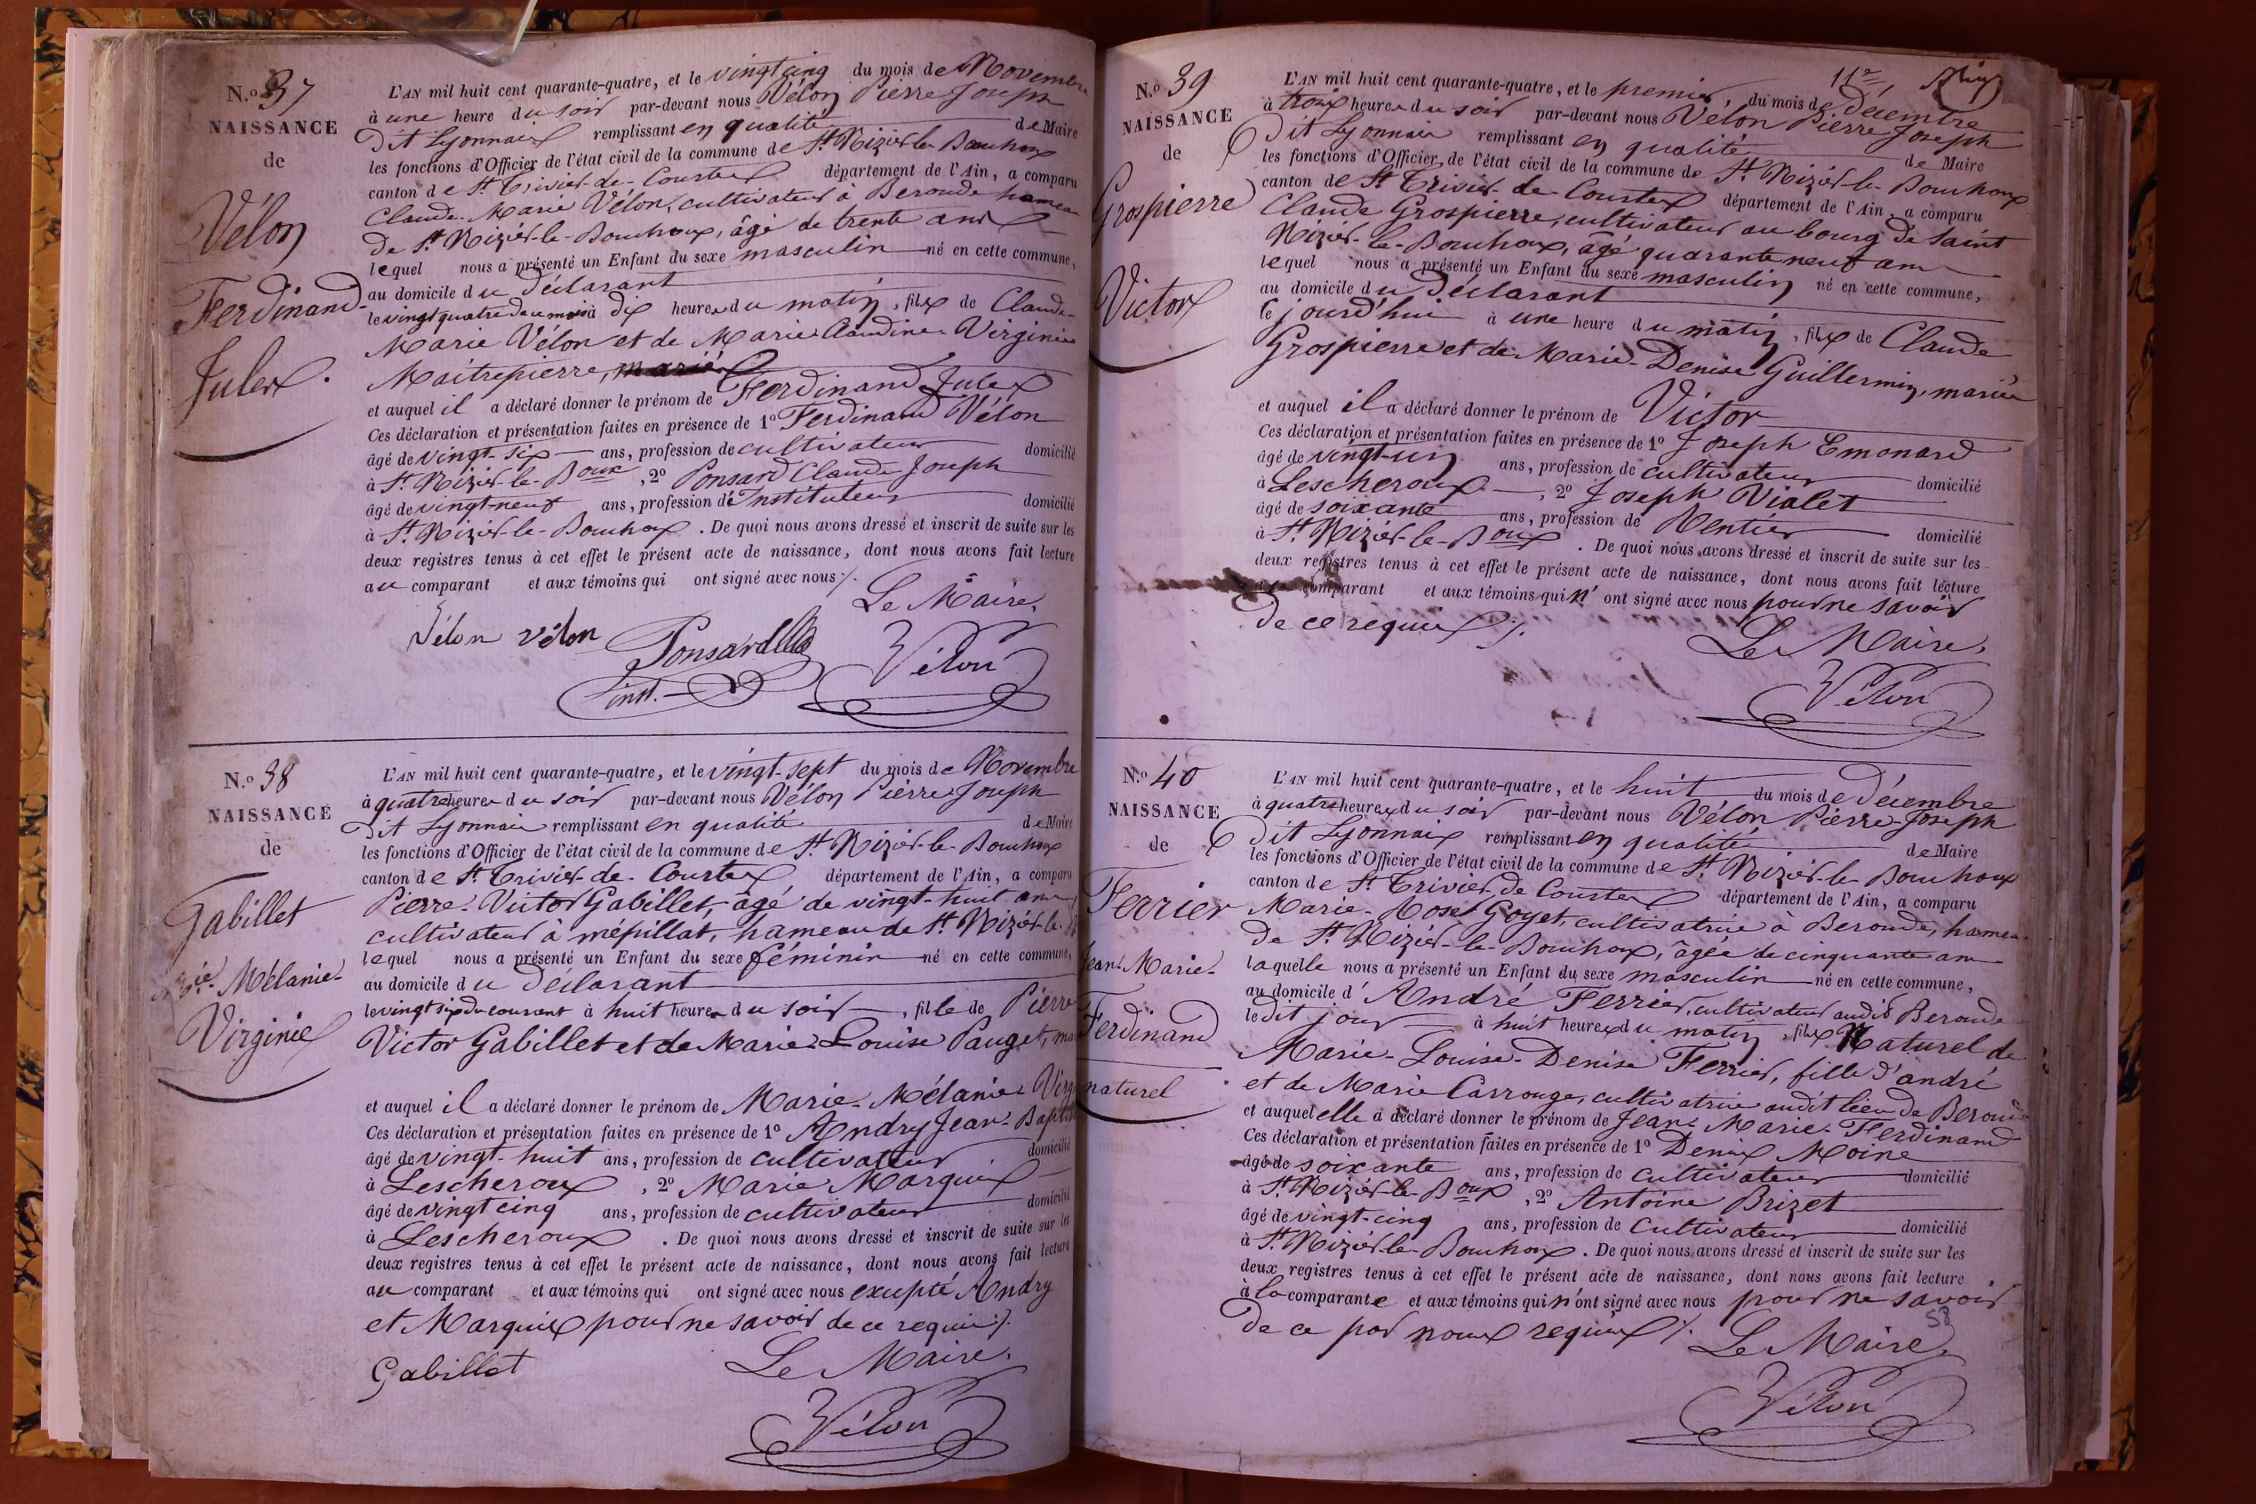 N.o 37
NAISSANCE
de
Vélon
Ferdinand-
Jules.
L'AN mil huit cent quarante-quatre, et le vingt cinq du mois de Novembre
à une heure du soir par-devant nous Vélon Pierre Joseph
dit Lyonnais remplissant en qualité de Maire
les fonctions d'Officier de l'état civil de la commune de St. Nizier-le-Bouchoux
canton de St. Trivier-de-Courtes département de l'Ain, a comparu
Claude-Marie Vélon, cultivateur à Beroude hameau
de St. Nizier-le-Bouchoux, âgé de trente ans
lequel nous a présenté un Enfant du sexe masculin né en cette commune,
au domicile du déclarant
le vingt quatre du mois à dix heures du matin, fils de Claude-
Marie Vélon et de Marie-Claudine-Virginie
Maitrepierre,
et auquel il a déclaré donner le prénom de Ferdinand Jules
Ces déclaration et présentation faites en présence de 1o Ferdinand Vélon
âgé de vingt-six ans, profession de cultivateur domicilié
à St. Nizier-le-Boux, 2o Ponsard Claude Joseph
âgé de vingt-neuf ans, profession d'Instituteur domicilié
à St. Nizier-le-Bouchoux. De quoi nous avons dressé et inscrit de suite sur les
deux registres tenus à cet effet le présent acte de naissance, dont nous avons fait lecture
au comparant et aux témoins qui ont signé avec nous ./.
Le Maire,
Vélon vélon Ponsard Vélon
inst.
N.o 38
NAISSANCE
de
Gabillet
Mie. Mélanie-
Virginie
L'AN mil huit cent quarante-quatre, et le vingt-sept du mois de Novembre
à quatre heures du soir par-devant nous Vélon Pierre Joseph
dit Lyonnais remplissant en qualité de Maire
les fonctions d'Officier de l'état civil de la commune de St. Nizier-le-Bouchoux
canton de St. Trivier-de-Courtes département de l'Ain, a comparu
Pierre-Victor Gabillet, âgé de vingt-huit ans,
cultivateur à mépillat, hameau de St. Nizier-le-
lequel nous a présenté un Enfant du sexe féminin né en cette commune,
au domicile du déclarant
le vingt six du courant à huit heures du soir, fille de Pierre
Victor Gabillet et de Marie-Louise Pauget,
et auquel il a déclaré donner le prénom de Marie-Mélanie-Virg
Ces déclaration et présentation faites en présence de 1o Andry Jean-Baptis
âgé de vingt-huit ans, profession de cultivateur domicilié
à Lescheroux, 2o Marie Marquis
âgé de vingt cinq ans, profession de cultivateur domicilié
à Lescheroux. De quoi nous avons dressé et inscrit de suite sur les
deux registres tenus à cet effet le présent acte de naissance, dont nous avons fait lecture
au comparant et aux témoins qui ont signé avec nous excepté Andry
et Marquis pour ne savoir de ce requis ./.
Le Maire.
Gabillet
Vélon
11e
N.o 39
NAISSANCE
de
Grospierre
Victor
L'AN mil huit cent quarante-quatre, et le premier du mois de décembre
à trois heures du soir par-devant nous Vélon Pierre Joseph
dit Lyonnais remplissant en qualité de Maire
les fonctions d'Officier de l'état civil de la commune de St. Nizier-le-Bouchoux
canton de St. Trivier-de-Courtes département de l'Ain, a comparu
Claude Grospierre, cultivateur au bourg de Saint
Nizier-le-Bouchoux, âgé quarante neuf ans
lequel nous a présenté un Enfant du sexe masculin né en cette commune,
au domicile du déclarant
ce jourd'hui à une heure du matin, fils de Claude
Grospierre et de Marie-Denise Guillermin, mariés
et auquel il a déclaré donner le prénom de Victor
Ces déclaration et présentation faites en présence de 1o Joseph Emonard
âgé de vingt-un ans, profession de cultivateur domicilié
à Lescheroux, 2o Joseph Vialet
âgé de soixante ans, profession de Rentier domicilié
à St. Nizier-le-Boux. De quoi nous avons dressé et inscrit de suite sur les
deux registres tenus à cet effet le présent acte de naissance, dont nous avons fait lecture
comparant et aux témoins qui n'ont signé avec nous pour ne savoir
de ce requis ./.
Le Maire,
Vélon
N.o 40
NAISSANCE
de
Ferrier
Jean-Marie-
Ferdinand
naturel
L'AN mil huit cent quarante-quatre, et le huit du mois de décembre
à quatre heures du soir par-devant nous Vélon Pierre-Joseph
dit Lyonnais remplissant en qualité de Maire
les fonctions d'Officier de l'état civil de la commune de St. Nizier-le-Bouchoux
canton de St. Trivier de Courtes département de l'Ain, a comparu
Marie-Rose Goyet, cultivatrice à Beroude, hameau
de St. Nizier-le-Bouchoux, âgée de cinquante ans
laquelle nous a présenté un Enfant du sexe masculin né en cette commune,
au domicile d'André Ferrier, cultivateur audit Beroude
ledit jour à huit heures du matin, fils Naturel de
Marie-Louise-Denise Ferrier, fille d'andré
et de Marie Carrouge, cultivatrice audit lieu de Beroude
et auquel elle a déclaré donner le prénom de Jean-Marie-Ferdinand
Ces déclaration et présentation faites en présence de 1o Denis Moine
âgé de soixante ans, profession de cultivateur domicilié
à St. Nizier-le-Boux, 2o Antoine Brizet
âgé de vingt-cinq ans, profession de Cultivateur domicilié
à St. Nizier-le-Bouchoux. De quoi nous avons dressé et inscrit de suite sur les
deux registres tenus à cet effet le présent acte de naissance, dont nous avons fait lecture
à la comparante et aux témoins qui n'ont signé avec nous pour ne savoir
de ce par nous requis ./.
58
Le Maire,
Vélon